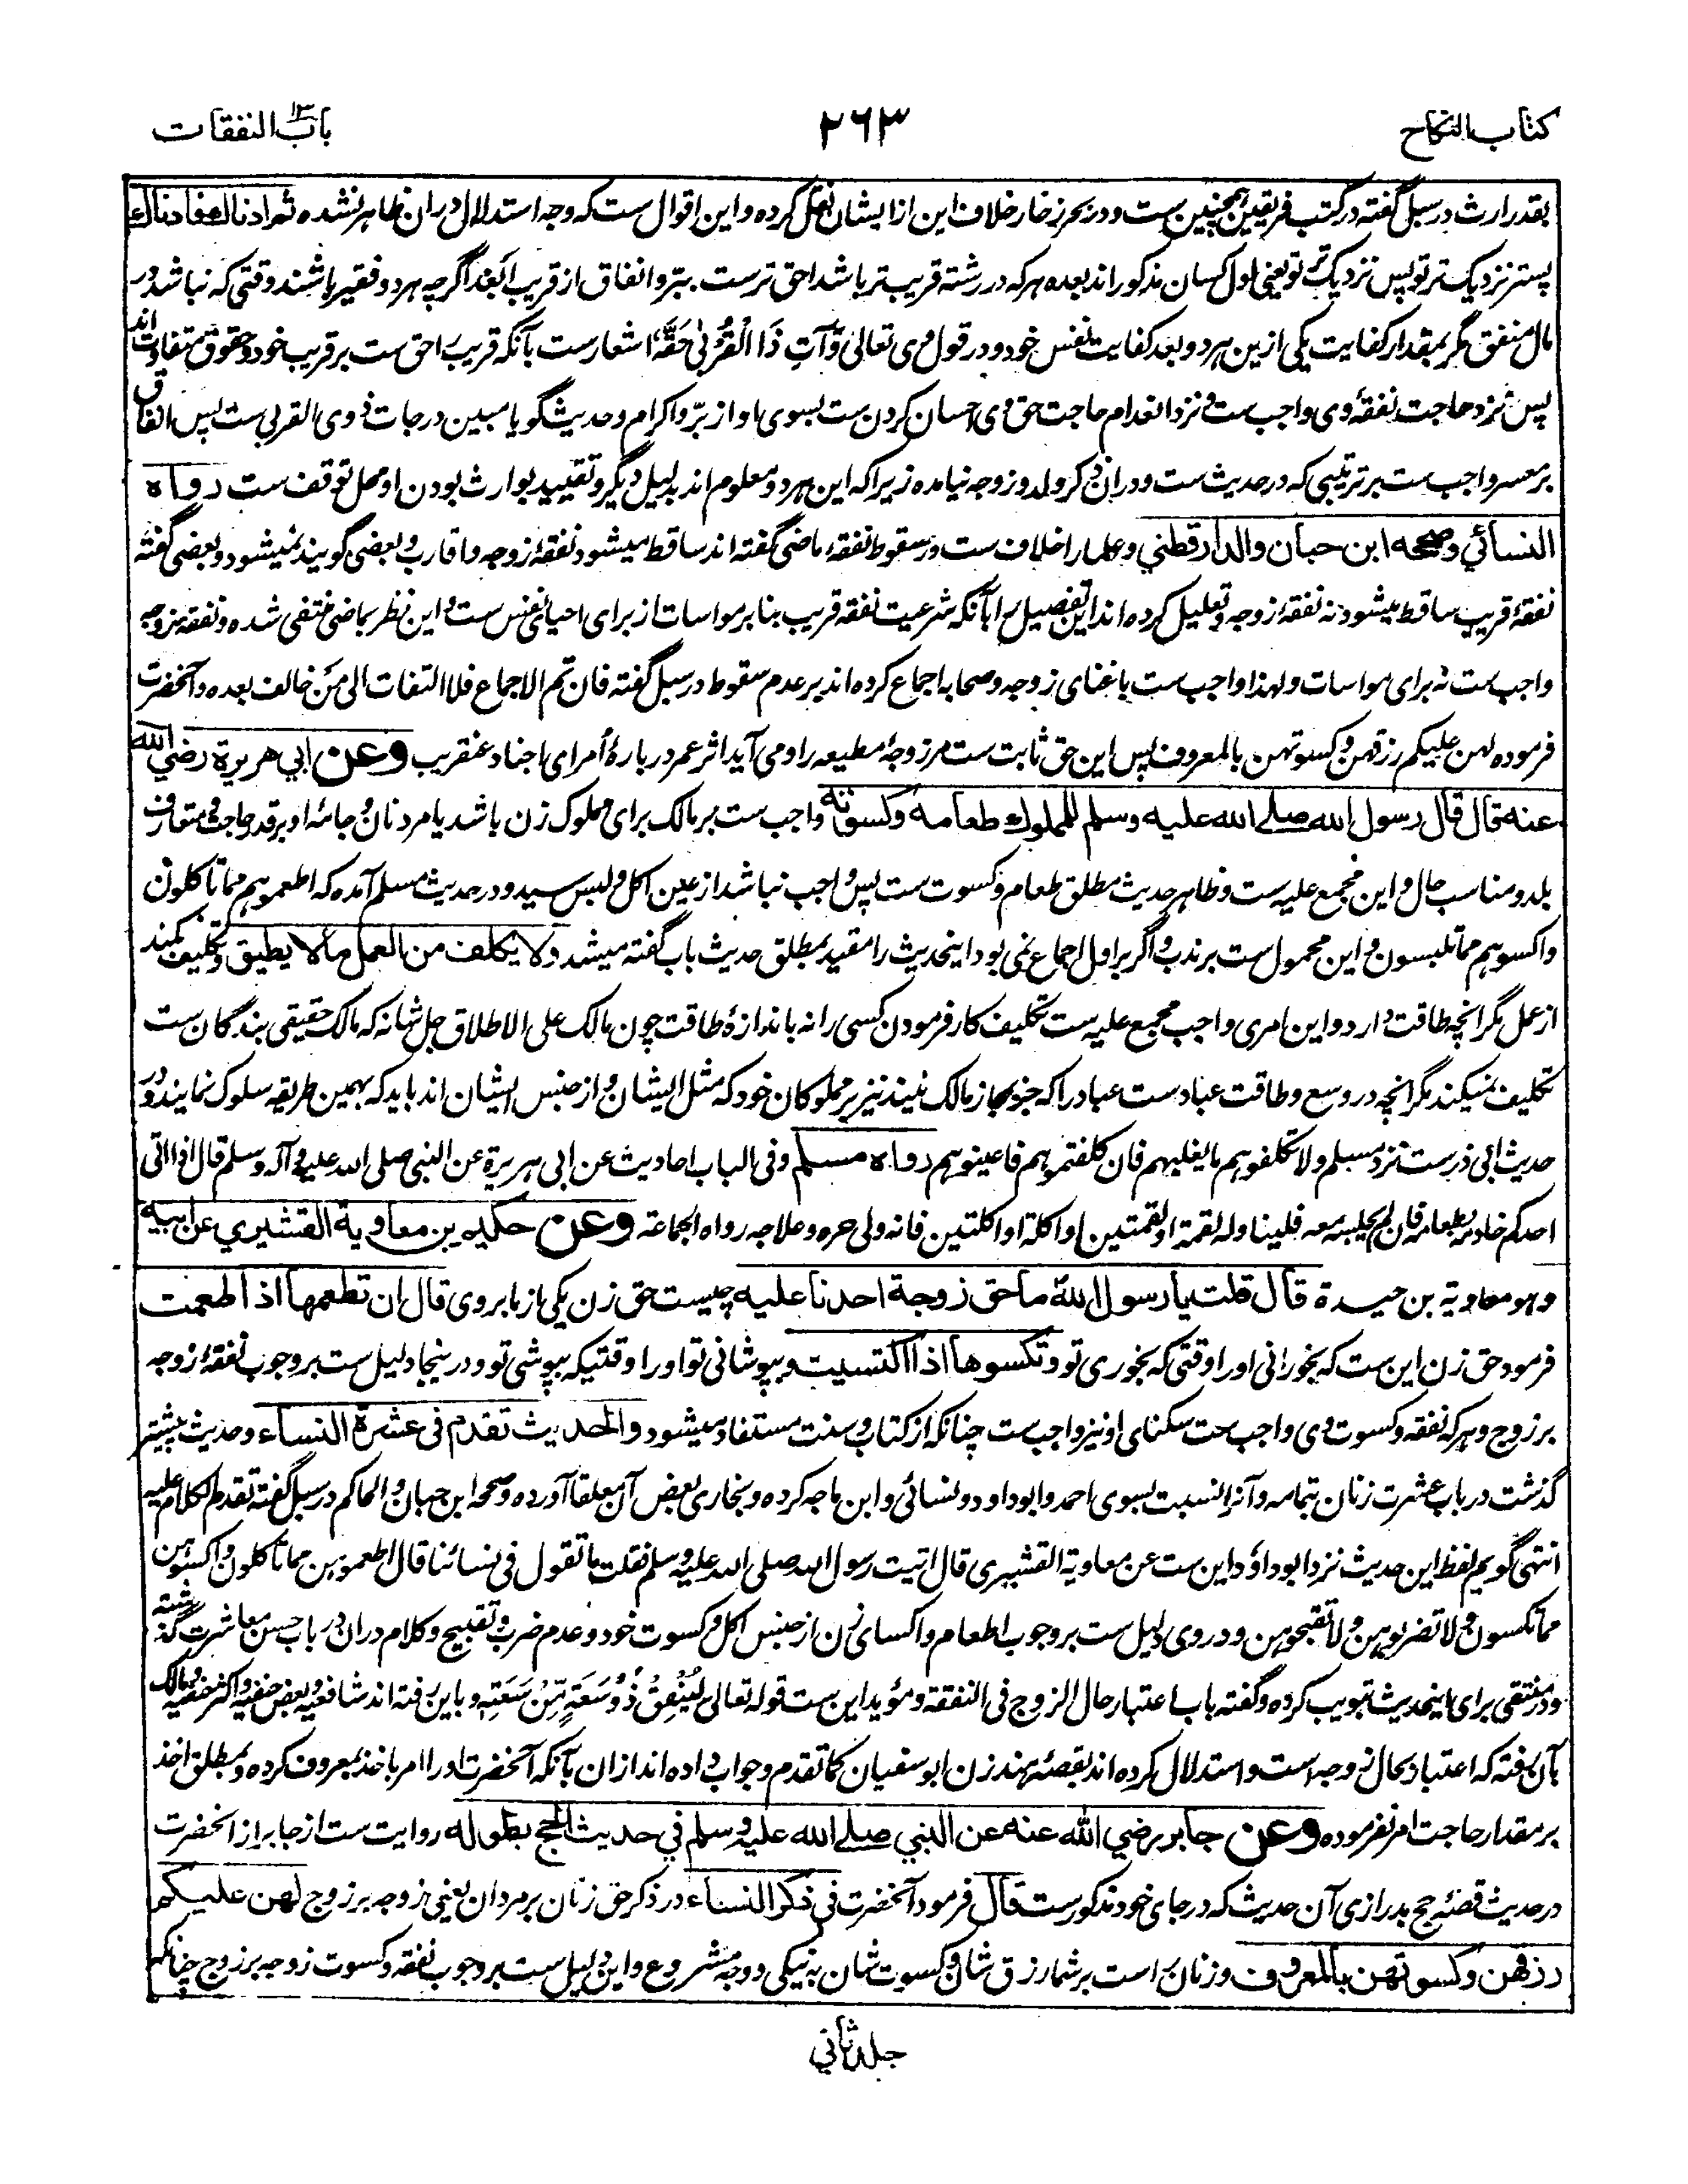 کتاب النکاح
۲۶۳
باب النفقات
بقدر ارث در سبل گفته در کتب فریقین همچنین ست و در بحر زخار خلاف این از ایشان نقل کرده و این اقوال ست که وجه استدلال دران ظاهر نشده ثم ادناك فادناك
پستر نزدیک تر تو پس نزدیک تر تو یعنی اول کسان مذکور اند بعده هر که در رشته قریب تر باشد احق ترست ببر و انفاق از قریب ابعد اگرچه هر دو فقیر باشند وقتی که نباشد در
مال منفق مگر بمقدار کفایت یکی ازین هر دو بعد کفایت نفس خود و در قول وی تعالی وَآتِ ذَا الْقُرْبىٰ حَقَّهُ اشعارست بآنکه قریب را حق ست بر قریب خود و حقوق متفاوت اند
پس نزد حاجت نفقهٔ وی واجب ست و نزد انعدام حاجت حق وی احسان کردن ست بسوی او از برّ و اکرام و حدیث گویا مبین درجات ذوی القربی ست پس انفاق
بر معسر واجب ست بر ترتیبی که در حدیث ست و دران ذکر ولد و زوجه نیامده زیراکه این هر دو معلوم اند بدلیل دیگر و تقیید بوارث بودن او محل توقف ست رواه
النسائي وصححه ابن حبان والدارقطني و علما را خلاف ست در سقوط نفقهٔ ماضی گفته اند ساقط میشود نفقهٔ زوجه و اقارب و بعضی گویند نمیشود و بعضی گفته
نفقهٔ قریب ساقط میشود نه نفقهٔ زوجه و تعلیل کرده اند این تفصیل را بآنکه شرعیت نفقه قریب بنا بر مواسات از برای احیای نفس ست و این نظر بماضی منتفی شده و نفقه زوجه
واجب ست نه برای مواسات و لهذا واجب ست با غنای زوجه و صحابه اجماع کرده اند بر عدم سقوط در سبل گفته فان تم الاجماع فلا التفات الی من خالف بعده و آنحضرت
فرموده لهن علیکم رزقهن و کسوتهن بالمعروف پس این حق ثابت ست مر زوجهٔ مطیعه را و می آید اثر عمر دربارهٔ أمرای اجناد عنقریب وعن ابي هريرة رضي الله
عنه قال قال رسول الله صلے الله عليه وسلم للمملوك طعامه وكسوته واجب ست بر مالک برای مملوک زن باشد یا مرد نان و جامهٔ او بر قدر حاجت و متعارف
بلد و مناسب حال و این مجمع علیه ست و ظاهر حدیث مطلق طعام و کسوت ست پس واجب نباشد از عین اکل و لبس سید و در حدیث مسلم آمده که اطعموهم مما تاکلون
واکسوهم مما تلبسون و این محمول ست بر ندب و اگر بر اول اجماع نمی بود این حدیث را مقید بمطلق حدیث باب گفته میشد ولا يكلف من العمل ما لا يطيق و تکلیف نکند
از عمل مگر انچه طاقت دارد و این امری واجب مجمع علیه ست تکلیف کار فرمودن کسی را نه باندازهٔ طاقت چون مالک علی الاطلاق جل شانه که مالک حقیقی بندگان ست
تکلیف نمیکند مگر انچه در وسع و طاقت عبادست عباد را که جز بمجاز مالک نیند نیز بر مملوکان خود که مثل ایشان و از جنس ایشان اند باید که بهمین طریقه سلوک نمایند و در
حدیث ابی ذر ست نزد مسلم ولا تکلفوهم ما یغلبهم فان کلفتموهم فاعینوهم رواه مسلم وفی الباب احادیث عن ابی هریرة عن النبی صلی الله علیه وآله وسلم قال اذا اتی
احدکم خادمه بطعامه فان لم یجلسه معه فلیناوله لقمة او لقمتین او اکلة او اکلتین فانه ولی حره وعلاجه رواه الجماعة وعن حكيم بن معاوية القشيري عن ابيه
وهو معاویة بن حیدة قال قلت يا رسول الله ما حق زوجة احدنا عليه چیست حق زن یکی از ما بروی قال ان تطعمها اذا طعمت
فرمود حق زن این ست که بخورانی او را وقتی که بخوری تو وتكسوها اذا اكتسيت و بپوشانی تو او را وقتیکه بپوشی تو و در ینجا دلیل ست بر وجوب نفقهٔ زوجه
بر زوج و هر که نفقه و کسوت وی واجب ست سکنای او نیز واجب ست چنانکه از کتاب و سنت مستفاد میشود والحديث تقدم في عشرة النساء و حدیث پیشتر
گذشت در باب عشرت زنان بتمامه و آنرا نسبت بسوی احمد و ابوداود و نسائی و ابن ماجه کرده و بخاری بعض آن معلقا آورده وصححه ابن حبان والحاکم در سبل گفته تقدم الکلام علیه
انتهی گویم لفظ این حدیث نزد ابوداؤد این ست عن معاویة القشیری قال اتیت رسول الله صلی الله علیه وسلم فقلت ما تقول فی نسائنا قال اطعموهن مما تاکلون واکسوهن
مما تکسون ولا تضربوهن ولا تقبحوهن و در وی دلیل ست بر وجوب اطعام و اکسای زن از جنس اکل و کسوت خود و عدم ضرب و تقبیح و کلام دران در باب حسن معاشرت گذشته
و در منتقی برای این حدیث تبویب کرده و گفته باب اعتبار حال الزوج فی النفقة و مؤید این ست قوله تعالی لِيُنْفِقْ ذُوْ سَعَةٍ مِّنْ سَعَتِهٖ و باین رفته اند شافعیه و بعض حنفیه و اکثر حنفیه و مالک
بآن رفته که اعتبار بحال زوجه است و استدلال کرده اند بقصهٔ هند زن ابو سفیان کما تقدم و جواب داده اند ازان بآنکه آنحضرت او را امر باخذ بمعروف کرده و بمطلق اخذ
بر مقدار حاجت امر نفرموده وعن جابر رضي الله عنه عن النبي صلے الله عليه وسلم في حديث الحج بطوله روایت ست از جابر از آنحضرت
در حدیث قصهٔ حج بدرازی آن حدیث که در جای خود مذکورست قال فرمود آنحضرت في ذكر النساء در ذکر حق زنان بر مردان یعنی زوجه بر زوج لهن عليكم
رزقهن وكسوتهن بالمعروف و زنان راست بر شما رزق شان و کسوت شان به نیکی و وجه مشروع و این دلیل ست بر وجوب نفقه و کسوت زوجه بر زوج چنانکه
جلد ثاني